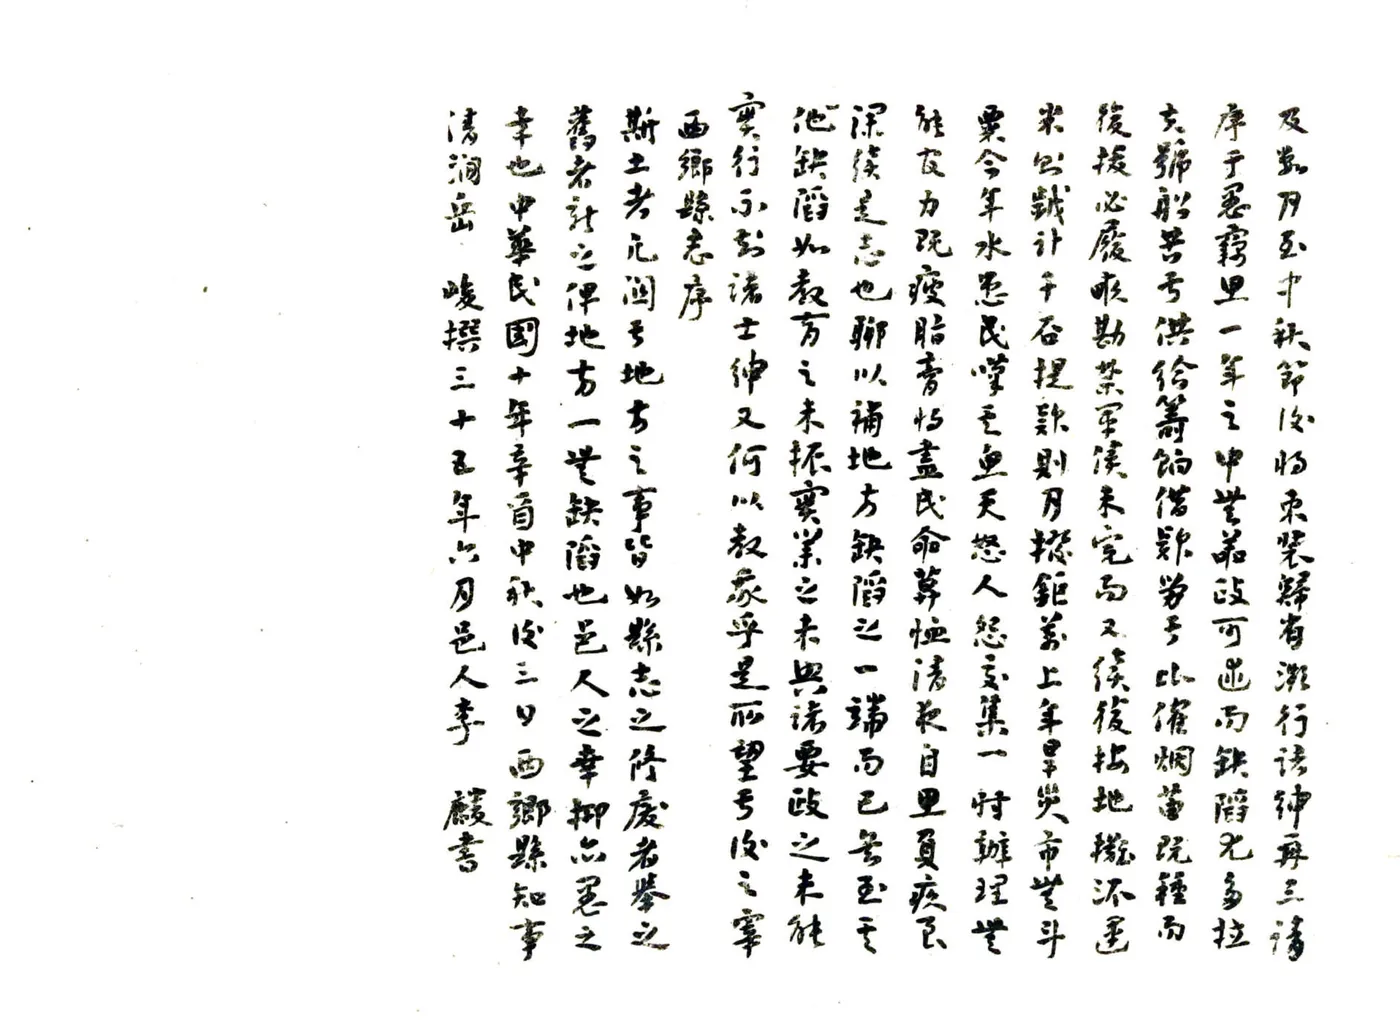 及數月至中秋節後將束裝歸省瀕行諸紳再三請
序于愚竊思一年之中無善政可述而缺陷尤多拉
夫號船苦于供給籌餉借款勞于比催烟苗既種而
後拔必廢畎勘禁軍債未完而又續後按地攤派運
米則越計千石提款則月撥鉅萬上年旱災市無斗
粟今年水患民嘆其魚天怒人怨交集一時辦理無
能官力既疲脂膏將盡民命莫恤清夜自思負疚良
深續是志也聊以補地方缺陷之一端而已無至其
他缺陷如教育之未振實業之未興諸要政之未能
實行不到諸士紳又何以教我乎是所望于後之宰
西鄉縣志序
斯土者凡關于地方之事皆如縣志之修廢者舉之
舊者新之俾地方一無缺陷也邑人之幸抑亦愚之
幸也中華民國十年辛酉中秋後三日西鄉縣知事
清澗岳　峻撰三十五年六月邑人李　馥書